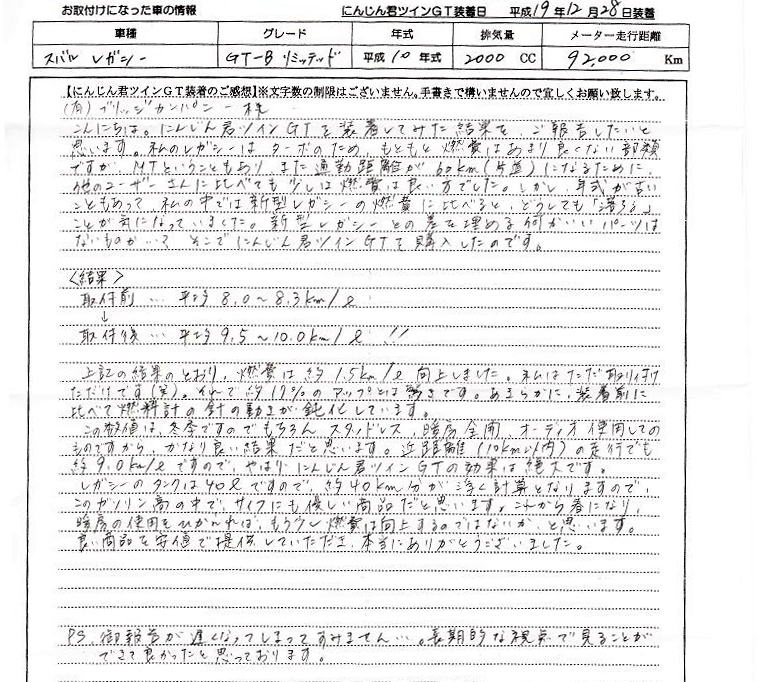 お取付けになった車の情報 にんじん君ツインGT装着日 平成19年12月28日装着
車種 グレード 年式 排気量 メーター走行距離
スバル レガシー GT-B リミテッド 平成10年式 2000 CC 92,000 Km
【にんじん君ツインGT装着のご感想】※文字数の制限はございません。手書きで構いませんので宜しくお願い致します。
(有)ブリッジカンパニー 様
こんにちは。にんじん君ツインGTを装着してみた結果を、ご報告したいと
思います。私のレガシーはターボのため、もともと燃費はあまり良くない部類
ですが、MTということもあり、また通勤距離が60km(片道)になるために、
他のユーザーさんに比べても少しは燃費は良い方でした。しかし、年式が古い
こともあって、私の中では新型レガシーの燃費に比べると、どうしても「落ちる」
ことが気になっていました。新型レガシーとの差を埋める何かいいパーツは
ないものか…で そこでにんじん君ツインGTを購入したのです。
<結果>
取付前… 平均 8.0～8.3km/ℓ
↓
取付後… 平均 9.5～10.0km/ℓ !!
上記の結果のとおり、燃費は約1.5km/ℓ向上しました。私はただ取り付け
ただけです(笑)。それで約17%のアップとは驚きです。あきらかに、装着前に
比べて燃料計の針の動きが鈍化しています。
この数値は、冬季ですのでもちろんスタッドレス、暖房全開、オーディオ使用しての
ものですから、かなり良い結果だと思います。近距離(10km以内)の走行でも
約9.0km/ℓですので、やはりにんじん君ツインGTの効果は絶大です。
レガシーのタンクは40ℓですので、約40km分が浮く計算となりますので、
このガソリン高の中で、サイフにも優しい商品だと思います。これから春になり、
暖房の使用をひかえれば、もう少し燃費は向上するのではないか、と思います。
良い商品を安値で提供していただき、本当にありがとうございました。
PS.御報告が遅くなってしまってすみません…。長期的な視点で見ることが
できて良かったと思っております。